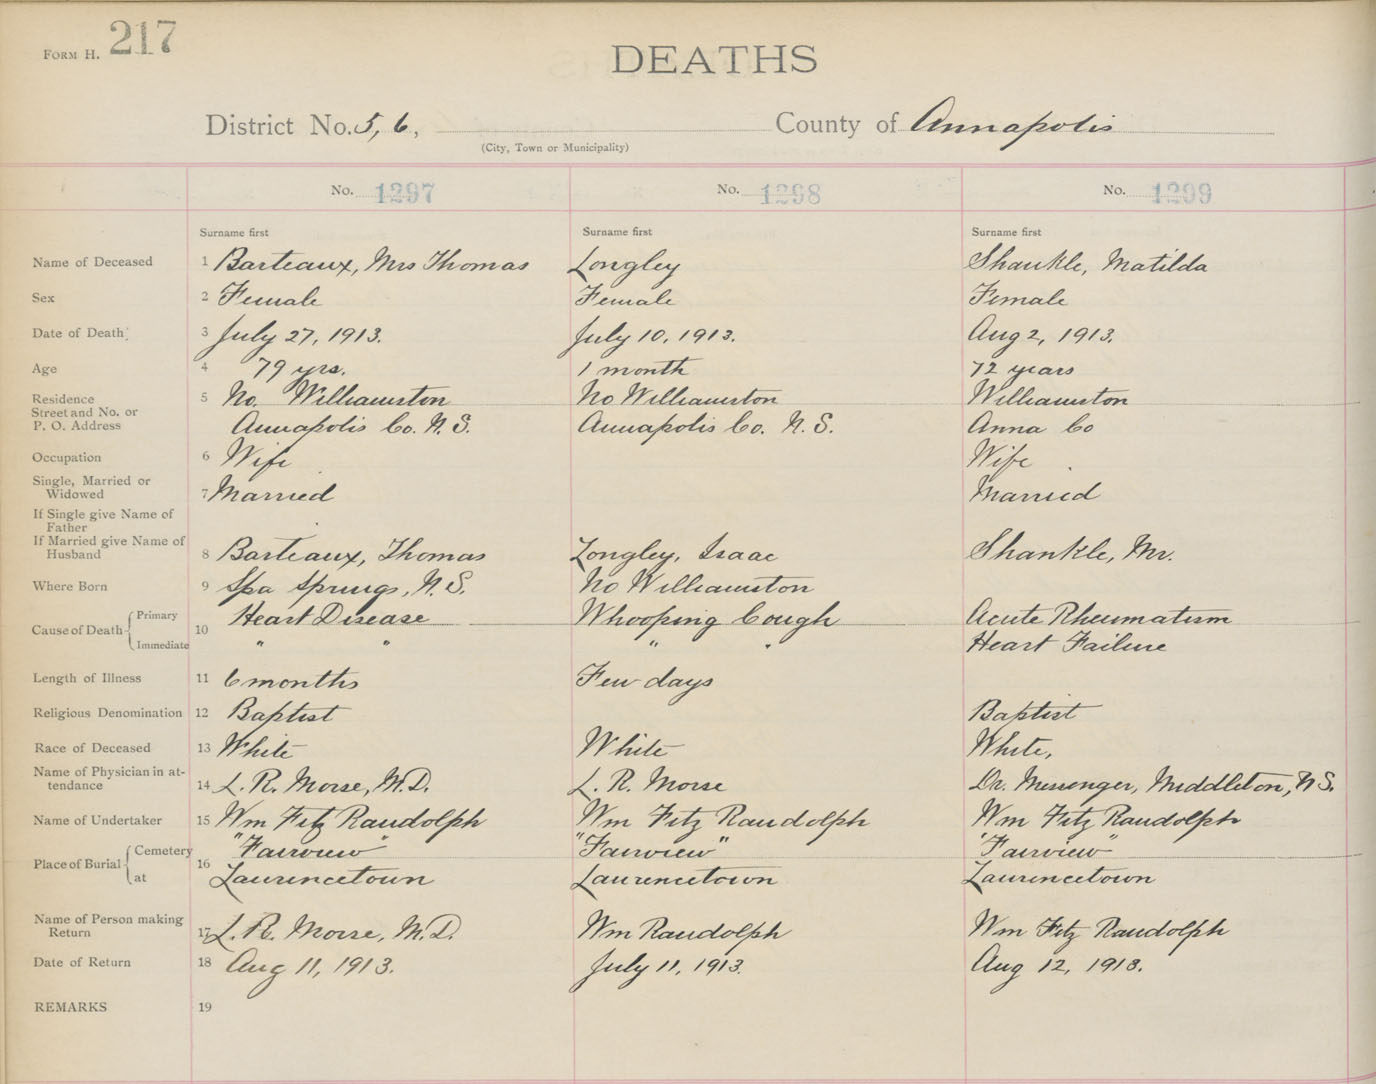 FORM H. 217
DEATHS
District No. 5, 6, County of Annapolis
(City, Town or Municipality)
No. 1297 No. 1298 No. 1299
Surname first Surname first Surname first
Name of Deceased 1 Barteaux, Mrs Thomas Longley Shankle, Matilda
Sex 2 Female Female Female
Date of Death 3 July 27, 1913. July 10, 1913. Aug 2, 1913.
Age 4 79 yrs. 1 month 72 years
Residence 5 No. Williamston No Williamston Williamston
Street and No. or
P. O. Address Annapolis Co. N.S. Annapolis Co. N.S. Anna Co
Occupation 6 Wife Wife
Single, Married or
Widowed 7 Married Married
If Single give Name of
Father
If Married give Name of
Husband 8 Barteaux, Thomas Longley, Isaac Shankle, Mr.
Where Born 9 Spa Springs, N.S. No Williamston
Cause of Death Primary 10 Heart Disease Whooping Cough Acute Rheumatism
Immediate " " " " Heart Failure
Length of Illness 11 6 months Few days
Religious Denomination 12 Baptist Baptist
Race of Deceased 13 White White White,
Name of Physician in at-
tendance 14 L. R. Morse, M.D. L. R. Morse Dr. Messenger, Middleton, N.S.
Name of Undertaker 15 Wm Fitz Randolph Wm Fitz Randolph Wm Fitz Randolph
Place of Burial Cemetery 16 "Fairview" "Fairview" "Fairview"
at Laurencetown Laurencetown Laurencetown
Name of Person making
Return 17 L. R. Morse, M.D. Wm Randolph Wm Fitz Randolph
Date of Return 18 Aug 11, 1913. July 11, 1913. Aug 12, 1913.
REMARKS 19